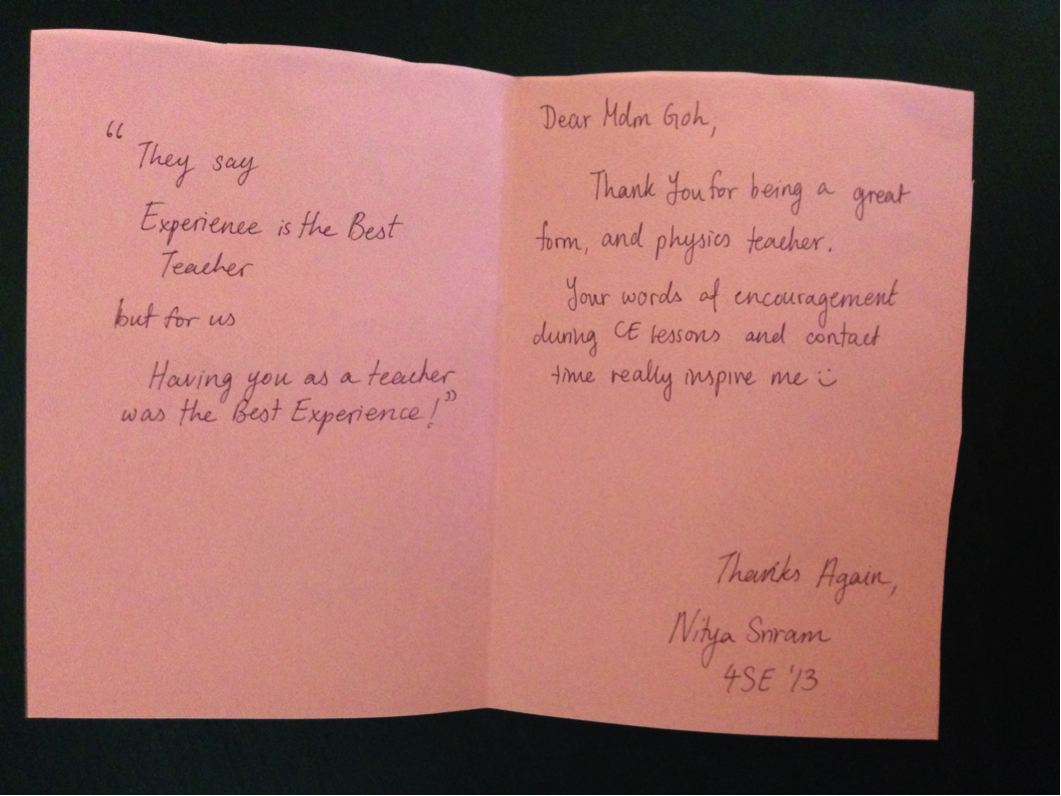 “ They say
Experience is the Best
Teacher
but for us
Having you as a teacher
was the Best Experience!”
Dear Mdm Goh,
Thank You for being a great
form, and physics teacher.
Your words of encouragement
during CE lessons and contact
time really inspire me :)
Thanks Again,
Nitya Sriram
4SE '13